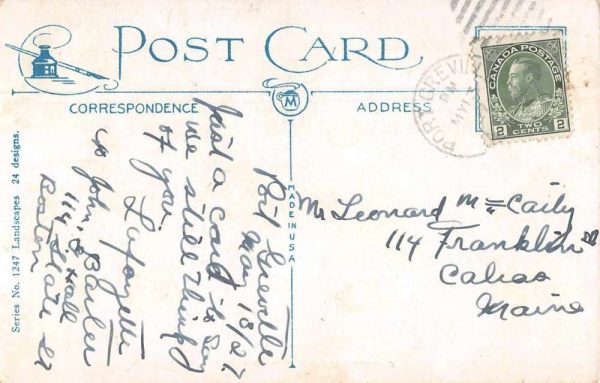 POST CARD
CORRESPONDENCE
ADDRESS
M
MADE IN U.S.A.
Series No. 1247 Landscapes 24 designs.
PORT GREVIL
PM
MY 1
CANADA POSTAGE
2 TWO CENTS 2
Port Greville
May 18/27
Just a card to say
we still think
of you.
Lafayette
John Barber
114
Boston State St
Mr Leonard Mc=Caily
114 Franklin
Calias
Maine